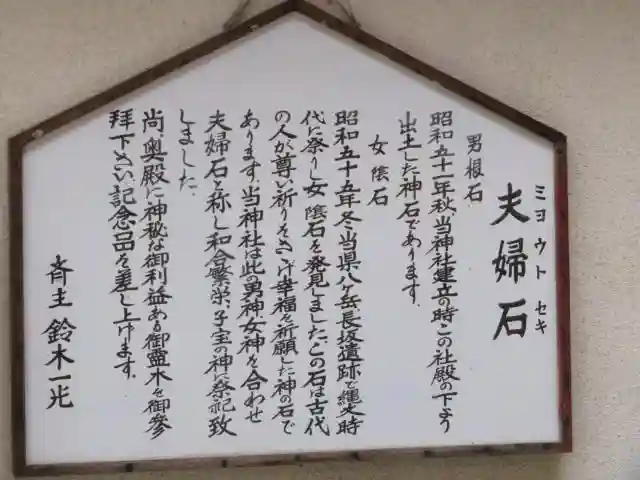 夫婦石
ミョウトセキ
男根石
昭和五十一年秋、当神社建立の時この社殿の下より
出土した神石であります。
女陰石
昭和五十五年冬、当県八ヶ岳長坂遺跡で縄文時
代に祭りし女陰石を発見しました、この石は古代
の人が尊い祈りをさゝげ幸福を祈願した神の石で
あります、当神社は此の男神、女神を合わせ
夫婦石と称し和合繁栄、子宝の神に祭祀致
しました、
尚、奥殿に神秘な御利益ある御霊木を御参
拝下さい、記念品を差し上げます、
斉主 鈴木一光